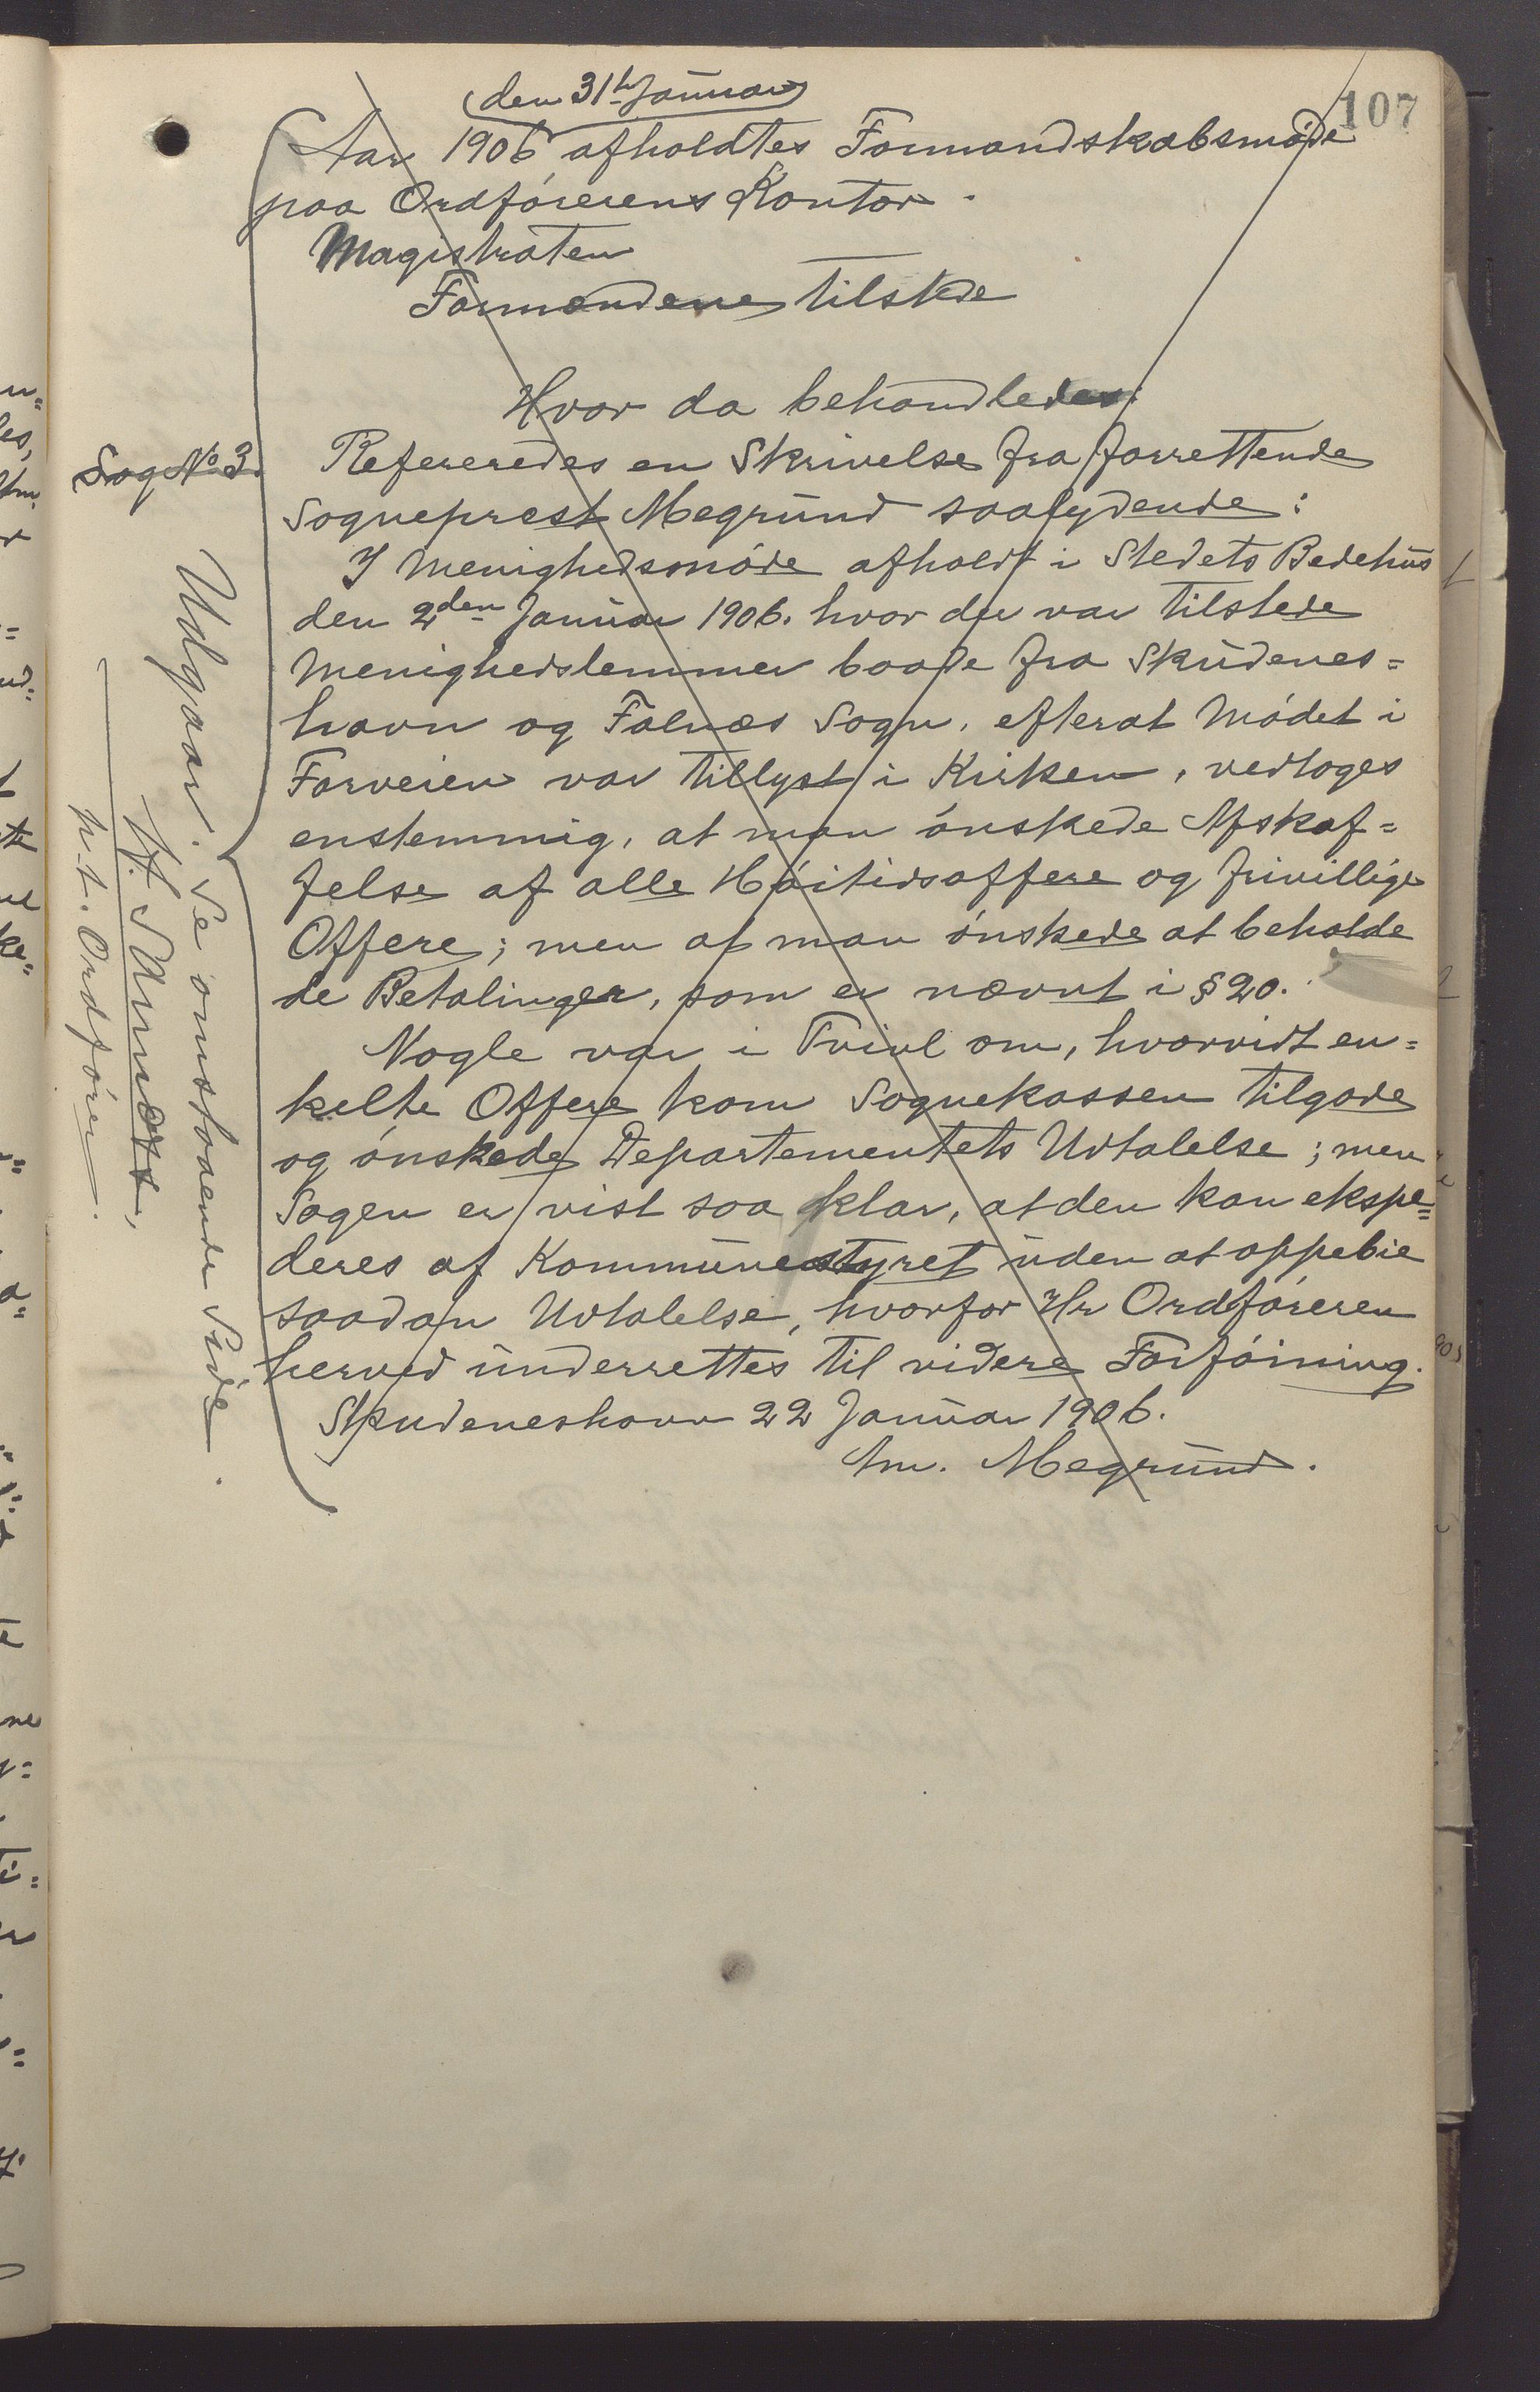 107
den 31te Januar
Aar 1906 afholdtes Formandskabsmøde
paa Ordførerens Kontor.
Magistraten
Formændene tilstede
Hvor da behandledes:
Sag No 3. Refereredes en Skrivelse fra forrettende
Sogneprest Megrund saalydende:
I Menighedsmøde afholdt i Stedets Bedehus
den 2den Januar 1906. hvor der var tilstede
Menighedslemmer baade fra Skudenes=
havn og Falnæs Sogn, efterat Mødet i
Forveien var tillyst i Kirken, vedtoges
enstemmig, at man ønskede Afskaf=
felse af alle Høitidsoffere og frivillige
Offere; men at man ønskede at beholde
de Betalinger, som er nævnt i § 20.
Nogle var i Tvivl om, hvorvidt en=
kelte Offere kom Sognekassen tilgode
og ønskede Departementets Udtalelse; men
Sagen er vist saa klar, at den kan ekspe=
deres af Kommunestyret uden at oppebie
saadan Udtalelse, hvorfor Hr Ordføreren
herved underrettes til videre Forføining.
Skudeneshavn 22 Januar 1906.
Am. Megrund.
Udgaar. Se omstaaende Side.
h.t. Ordfører.